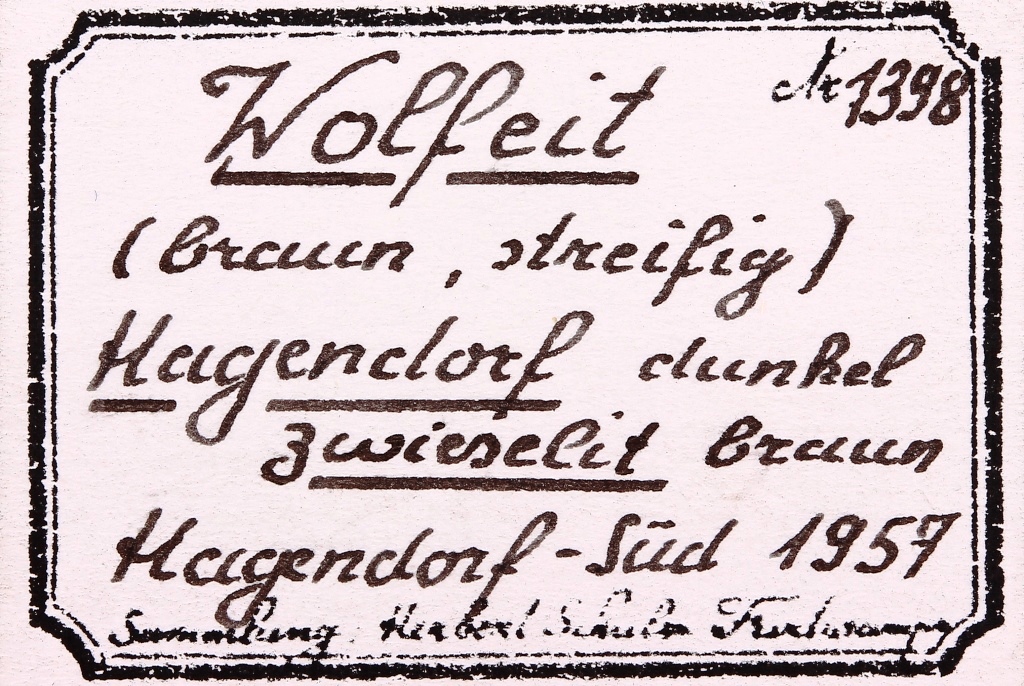 Wolfeit Nr 1398
(braun, streifig)
Hagendorf dunkel
zwieselit braun
Hagendorf-Süd 1957
Sammlung Herbert